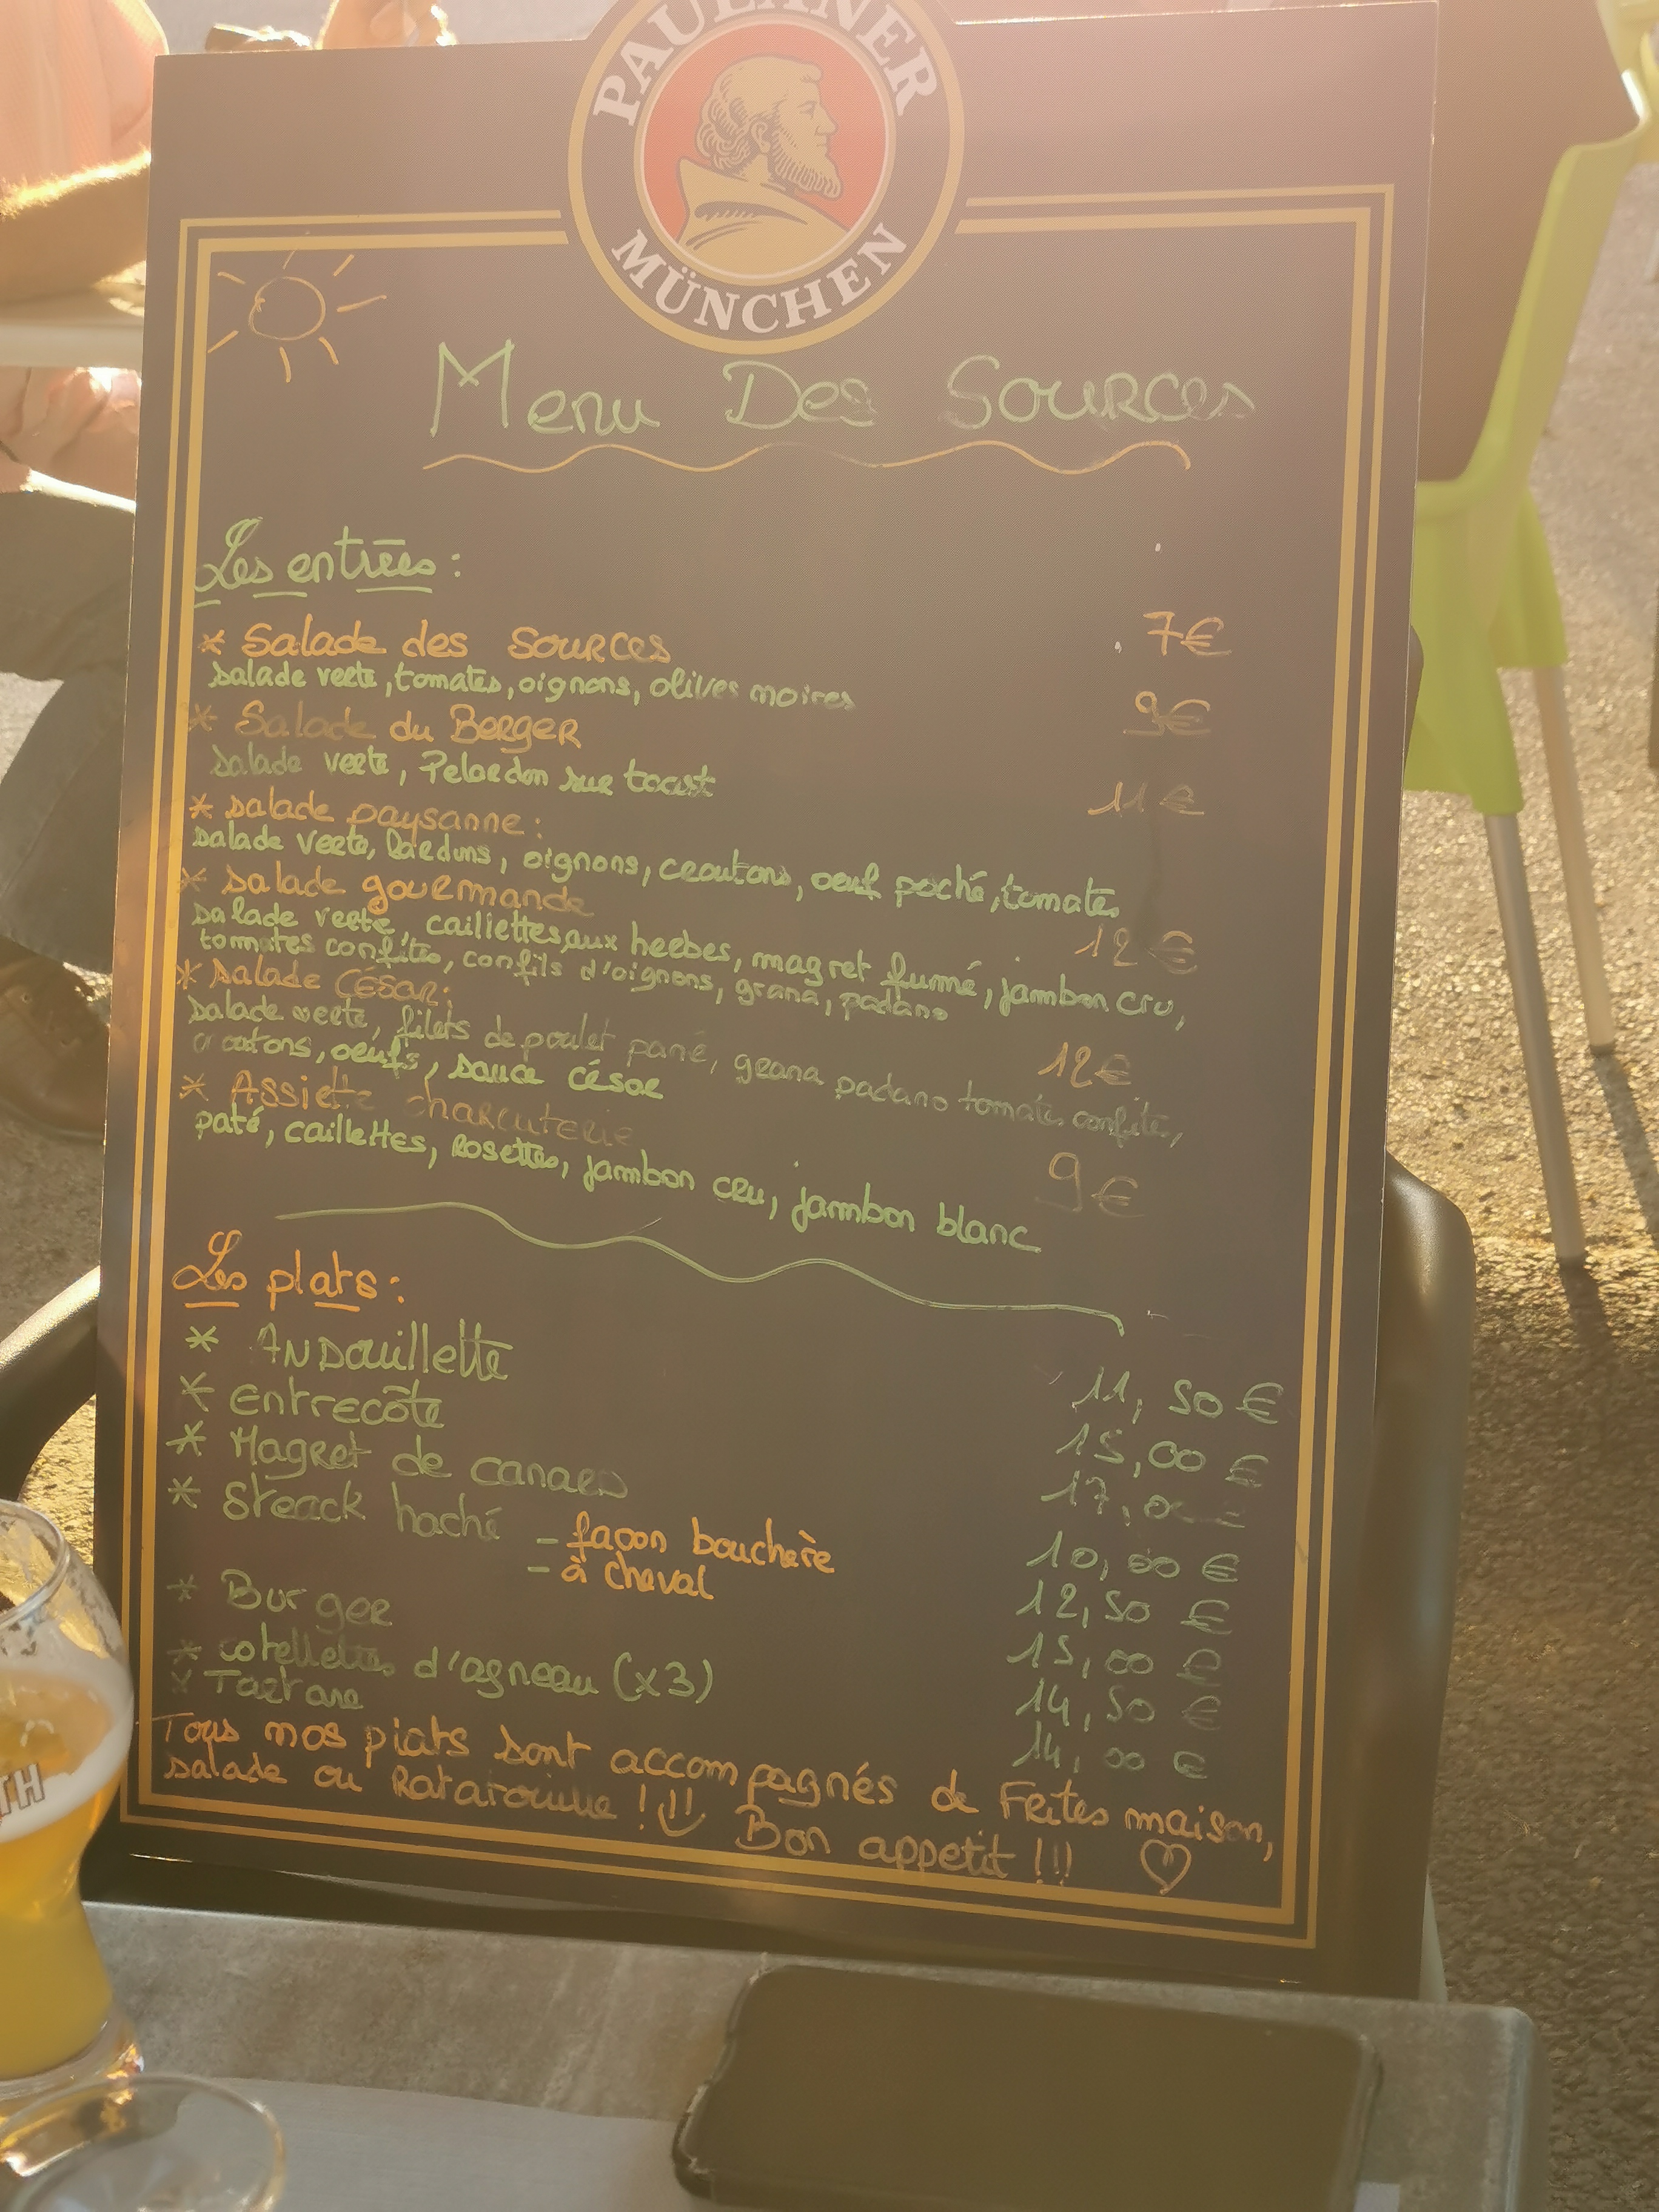 PAULANER
MÜNCHEN
Menu Des Sources
Les entrées :
* Salade des Sources 7€
salade verte, tomates, oignons, olives noires
* Salade du Berger 9€
salade verte, Pelardon sur toast
* salade paysanne : 11€
salade verte, lardons, oignons, croutons, oeuf poché, tomates
* salade gourmande 12€
salade verte, caillettes aux herbes, magret fumé, jambon cru,
tomates confites, confits d'oignons, grana, padano
* salade César : 12€
salade verte, filets de poulet pané, grana padano tomates confites,
croutons, oeufs, sauce césar
* Assiette charcuterie 9€
paté, caillettes, rosettes, jambon cru, jambon blanc
Les plats :
* Andouillette 11,50€
* Entrecôte 15,00€
* Magret de canard 17,00€
* Steack haché - façon bouchère 10,00€
- à cheval 12,50€
* Burger 15,00€
* cotellettes d'agneau (x3) 14,50€
* Tartare 14,00€
Tous nos plats sont accompagnés de Frites maison,
salade ou Ratatouille ! Bon appetit !!!
TH